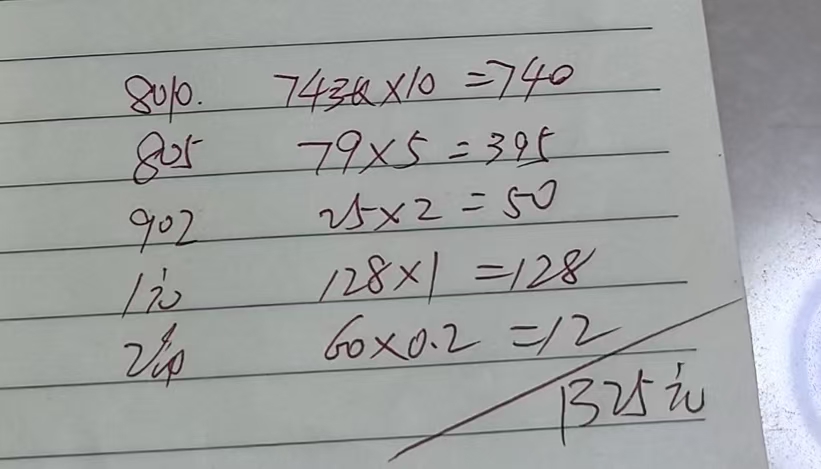 8010. 74 × 10 = 740
805 79 × 5 = 395
902 25 × 2 = 50
128 × 1 = 128
60 × 0.2 = 12
1325元